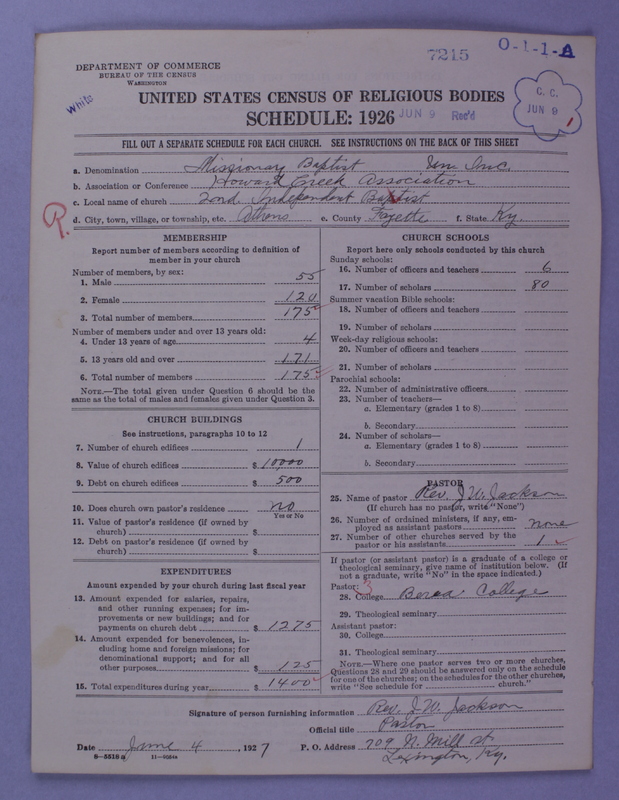 7215
O-1-1-A
DEPARTMENT OF COMMERCE
BUREAU OF THE CENSUS
WASHINGTON
White
C. C.
JUN 9
1
UNITED STATES CENSUS OF RELIGIOUS BODIES
SCHEDULE: 1926
JUN 9 Rec'd
FILL OUT A SEPARATE SCHEDULE FOR EACH CHURCH. SEE INSTRUCTIONS ON THE BACK OF THIS SHEET
a. Denomination Missionary Baptist
b. Association or Conference Howard Creek Association
c. Local name of church 2ond Independent Baptist
d. City, town, village, or township, etc. Athens e. County Fayette f. State Ky.
MEMBERSHIP
Report number of members according to definition of
member in your church
Number of members, by sex:
1. Male 55
2. Female 120
3. Total number of members 175
Number of members under and over 13 years old:
4. Under 13 years of age 4
5. 13 years old and over 171
6. Total number of members 175
NOTE.—The total given under Question 6 should be the
same as the total of males and females given under Question 3.
CHURCH BUILDINGS
See instructions, paragraphs 10 to 12
7. Number of church edifices 1
8. Value of church edifices $ 10000
9. Debt on church edifices $ 500
10. Does church own pastor's residence no
Yes or No
11. Value of pastor's residence (if owned by
church) $
12. Debt on pastor's residence (if owned by
church) $
EXPENDITURES
Amount expended by your church during last fiscal year
13. Amount expended for salaries, repairs,
and other running expenses; for im-
provements or new buildings; and for
payments on church debt $ 1275
14. Amount expended for benevolences, in-
cluding home and foreign missions; for
denominational support; and for all
other purposes $ 125
15. Total expenditures during year $ 1400
CHURCH SCHOOLS
Report here only schools conducted by this church
Sunday schools:
16. Number of officers and teachers 6
17. Number of scholars 80
Summer vacation Bible schools:
18. Number of officers and teachers
19. Number of scholars
Week-day religious schools:
20. Number of officers and teachers
21. Number of scholars
Parochial schools:
22. Number of administrative officers
23. Number of teachers—
a. Elementary (grades 1 to 8)
b. Secondary
24. Number of scholars—
a. Elementary (grades 1 to 8)
b. Secondary
PASTOR
25. Name of pastor Rev. J. W. Jackson
(If church has no pastor, write "None")
26. Number of ordained ministers, if any, em-
ployed as assistant pastors none
27. Number of other churches served by the
pastor or his assistants 1
If pastor (or assistant pastor) is a graduate of a college or
theological seminary, give name of institution below. (If
not a graduate, write "No" in the space indicated.)
Pastor: 3
28. College Berea College
29. Theological seminary
Assistant pastor:
30. College
31. Theological seminary
NOTE.—Where one pastor serves two or more churches,
Questions 28 and 29 should be answered only on the schedule
for one of the churches; on the schedules for the other churches,
write "See schedule for church."
Signature of person furnishing information Rev. J. W. Jackson
Official title Pastor
Date June 4, 1927 P. O. Address 709 N. Mill st
Lexington, Ky.